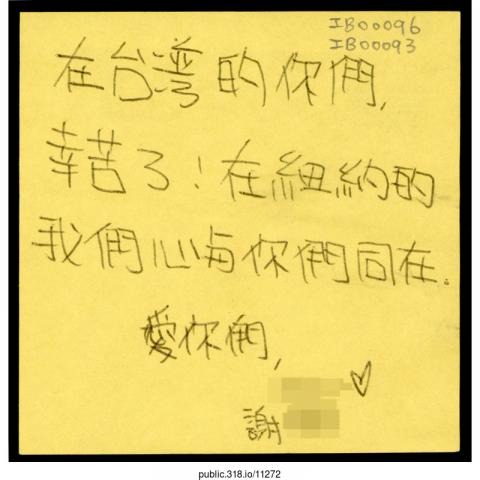 IB00096
IB00093
在台湾的你們,
幸苦了!在紐約的
我們心与你們同在.
愛你們,
謝
public.318.io/11272